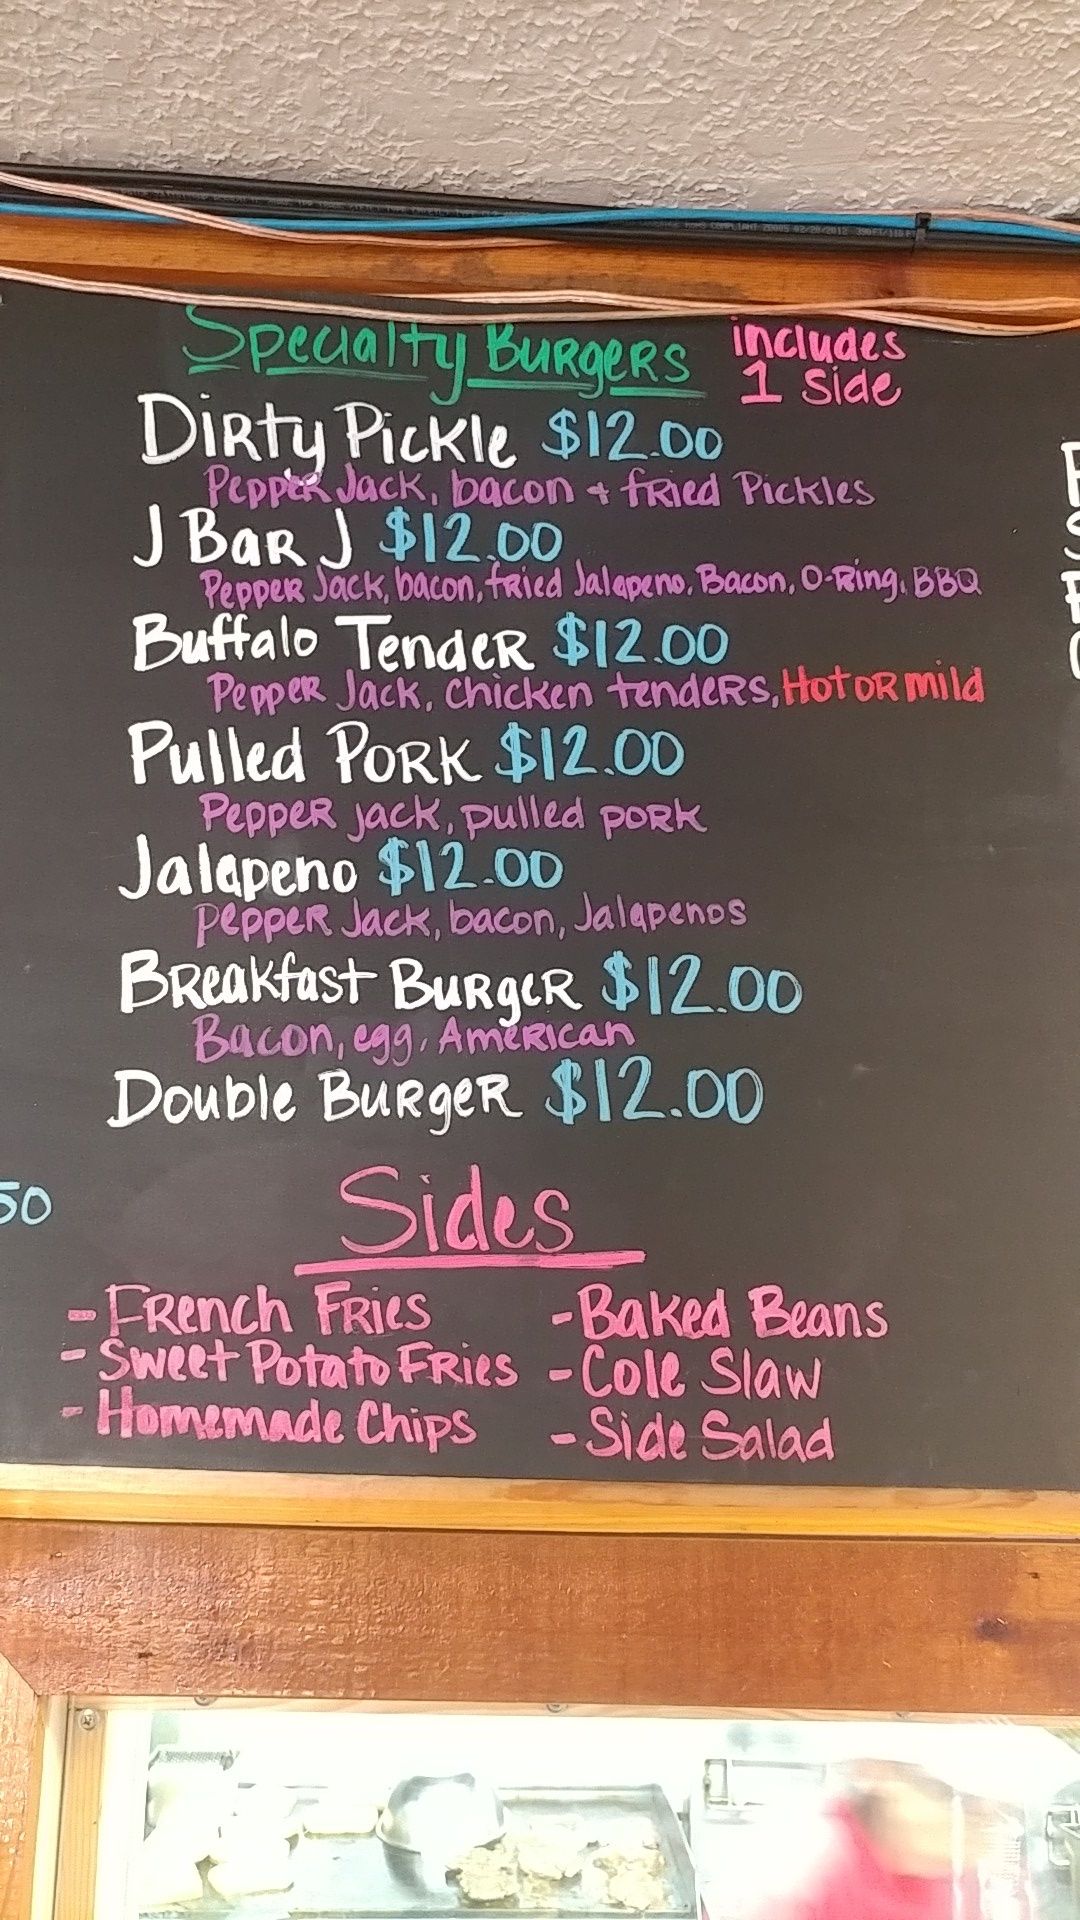 Specialty Burgers includes
1 Side
Dirty Pickle $12.00
Pepper Jack, bacon + fried Pickles
J Bar J $12.00
Pepper Jack, bacon, fried Jalapeno, Bacon, O-Ring, BBQ
Buffalo Tender $12.00
Pepper Jack, chicken tenders, Hot or mild
Pulled Pork $12.00
Pepper jack, pulled pork
Jalapeno $12.00
Pepper Jack, bacon, Jalapenos
Breakfast Burger $12.00
Bacon, egg, American
Double Burger $12.00
50
Sides
- French Fries
- Sweet Potato Fries
- Homemade Chips
- Baked Beans
- Cole Slaw
- Side Salad